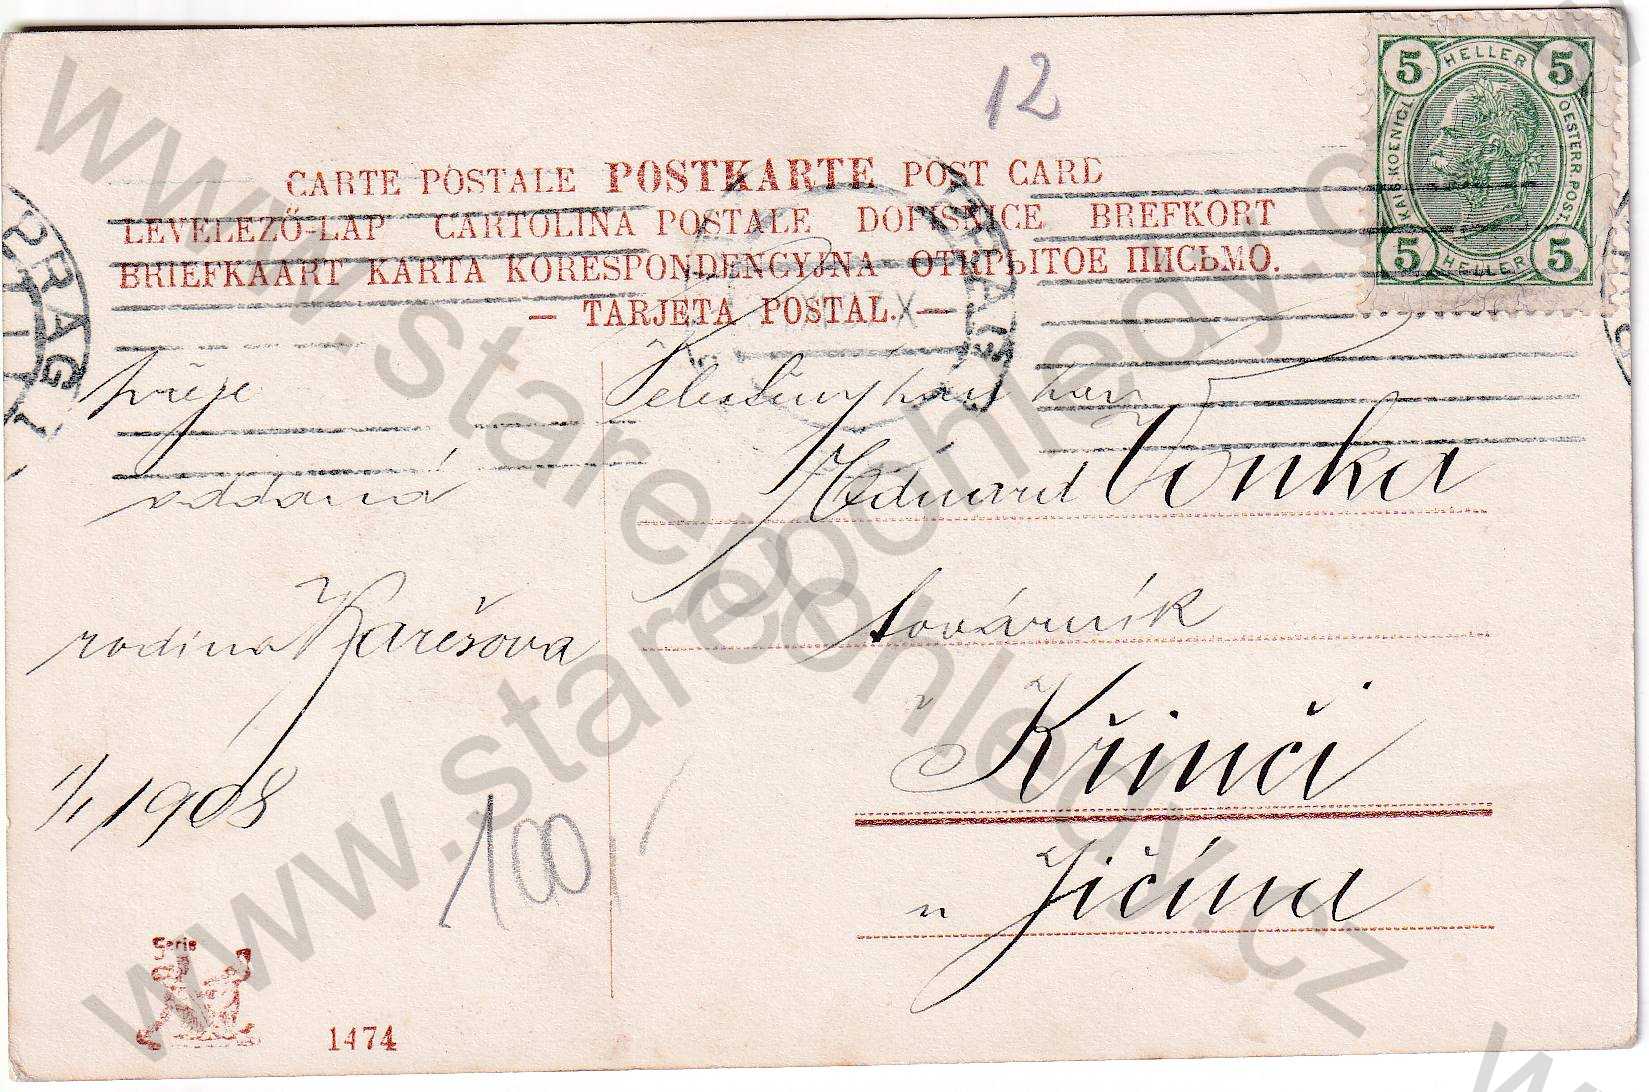 12
5 HELLER 5
KAIS. KOENIGL. OESTERR. POST.
5 HELLER 5
CARTE POSTALE POSTKARTE POST CARD
LEVELEZŐ-LAP CARTOLINA POSTALE DOPISNICE BREFKORT
BRIEFKAART KARTA KORESPONDENCYJNA ОТКРЫТОЕ ПИСЬМО.
— TARJETA POSTAL. —
PRAG 1
přeje
oddaná
rodina Karešova
1/1 1908
100,/
pan
Eduard Vonka
továrník
v
Křinči
u Jičína
Serie
1474
www.starepohledy.cz
www.starepohledy.cz